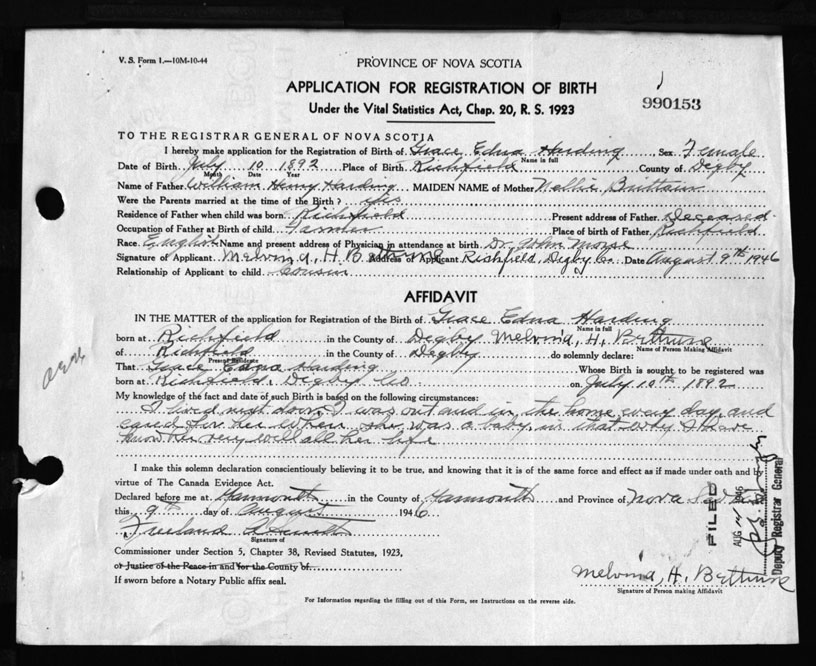 V. S. Form 1.—10M-10-44
PROVINCE OF NOVA SCOTIA
APPLICATION FOR REGISTRATION OF BIRTH
Under the Vital Statistics Act, Chap. 20, R. S. 1923
990153
TO THE REGISTRAR GENERAL OF NOVA SCOTIA
I hereby make application for the Registration of Birth of Grace Edna Harding, Sex Female
Name in full
Date of Birth July 10 1892 Place of Birth Richfield County of Digby
Month Date Year
Name of Father William Henry Harding MAIDEN NAME of Mother Nellie
Were the Parents married at the time of the Birth? yes
Residence of Father when child was born Richfield Present address of Father Deceased
Occupation of Father at Birth of child Farmer Place of birth of Father Richfield
Race English Name and present address of Physician in attendance at birth Dr. John Morse
Signature of Applicant Melvina, H. Bethune Address of Applicant Richfield, Digby Co. Date August 9th 1946
Relationship of Applicant to child cousin
AFFIDAVIT
IN THE MATTER of the application for Registration of the Birth of Grace Edna Harding
Name in full
born at Richfield in the County of Digby Melvina, H. Bethune
of Richfield in the County of Digby do solemnly declare:
Present Residence Name of Person Making Affidavit
That Grace Edna Harding Whose Birth is sought to be registered was
born at Richfield, Digby Co on July 10th 1892
My knowledge of the fact and date of such Birth is based on the following circumstances:
I lived next door, I was out and in the home every day, and
cared for her when she was a baby, in that way I have
know her very well all her life
I make this solemn declaration conscientiously believing it to be true, and knowing that it is of the same force and effect as if made under oath and by
virtue of The Canada Evidence Act.
Declared before me at Yarmouth in the County of Yarmouth and Province of Nova Scotia
this 9th day of August 1946
Freeland
Signature of
Commissioner under Section 5, Chapter 38, Revised Statutes, 1923,
or Justice of the Peace in and for the County of
If sworn before a Notary Public affix seal.
Melvina, H. Bethune
Signature of Person making Affidavit
For Information regarding the filling out of this Form, see Instructions on the reverse side.
FILED
AUG 14 1946
Deputy Registrar General